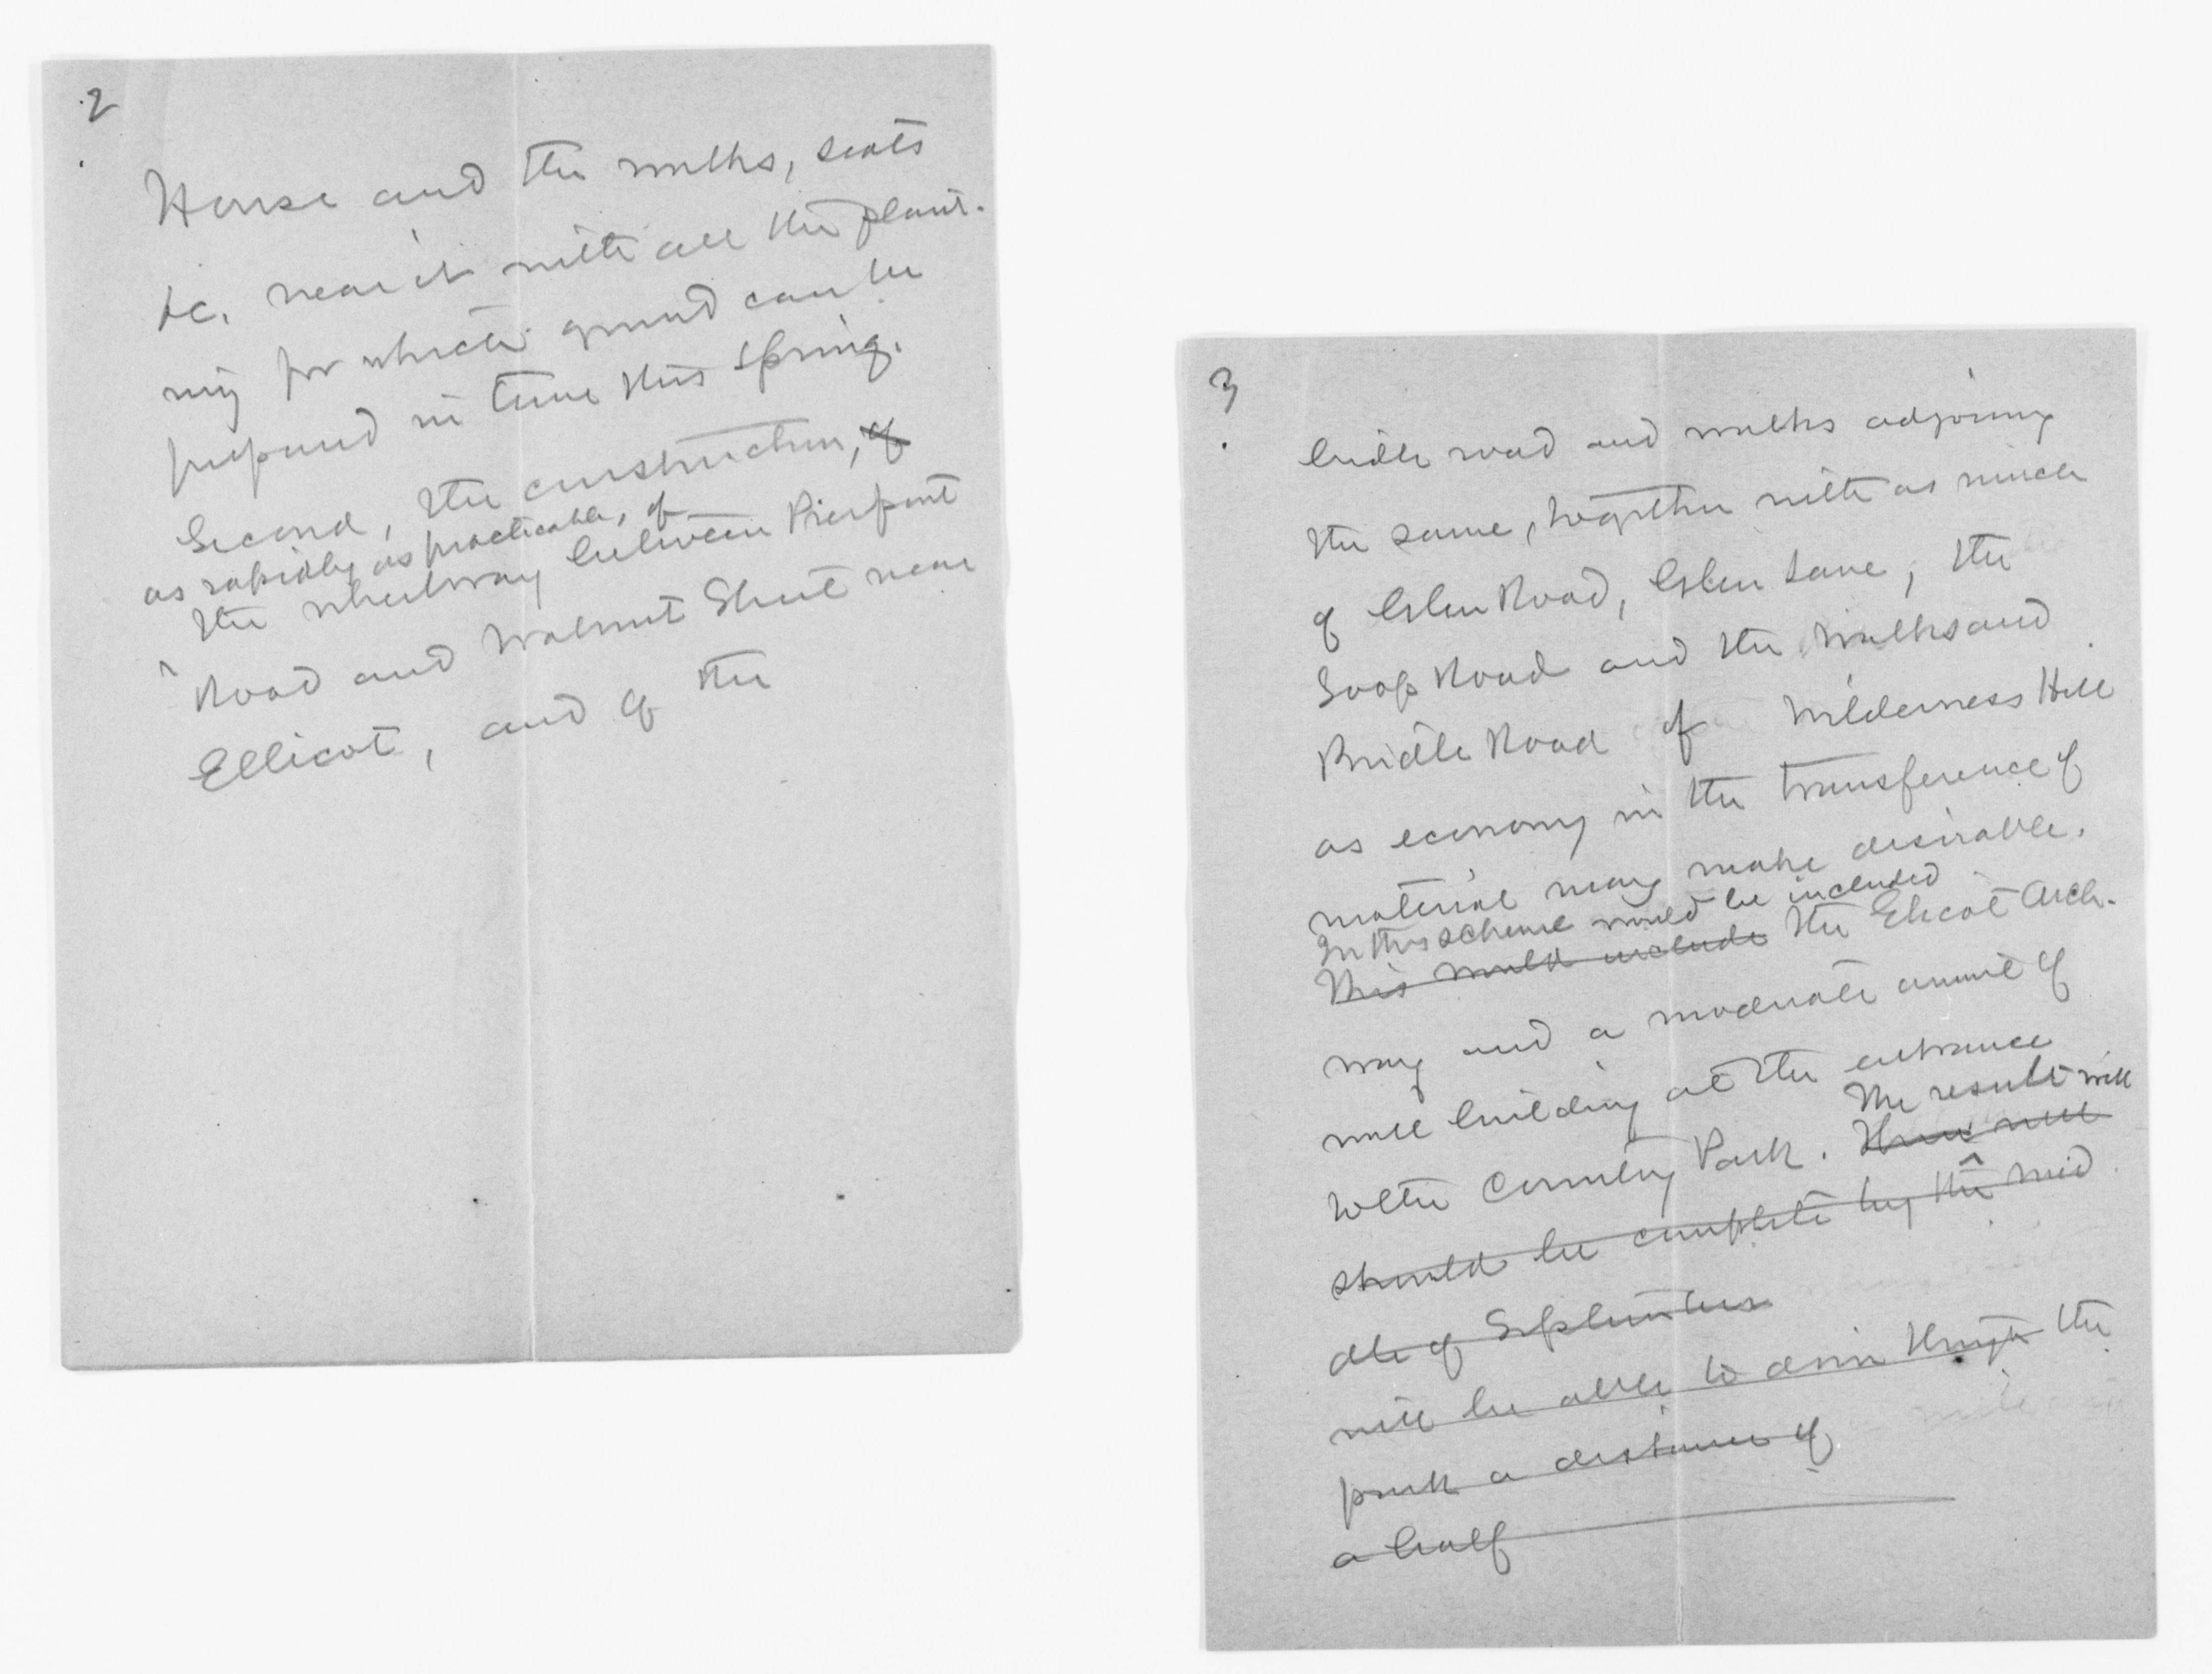 2
House and the walks, seats
&c. near it with all the plant-
ing for which ground can be
prepared in time this Spring.
Second, the construction, of
as rapidly as practicable, of
the wheelway between Pierpont
Road and Walnut Street near
Ellicot, and of the
3
bridle road and walks adjoining
the same, together with as much
of Glen Road, Glen Lane, the
Loop Road and the Walks and
Bridle Road of Wilderness Hill
as economy in the transference of
material may make desirable.
In this scheme would be included
This would include the Elicot Arch-
way and a moderate amount of
wall building at the entrance
to the Country Park.
The result will
should be complete by the mid
dle of September
will be able to drive through the
park a distance of
a half